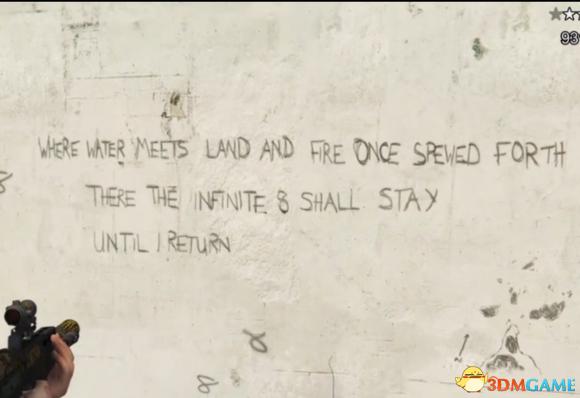 93
WHERE WATER MEETS LAND AND FIRE ONCE SPEWED FORTH
8
THERE THE INFINITE 8 SHALL STAY
UNTIL I RETURN
8
8
3DMGAME